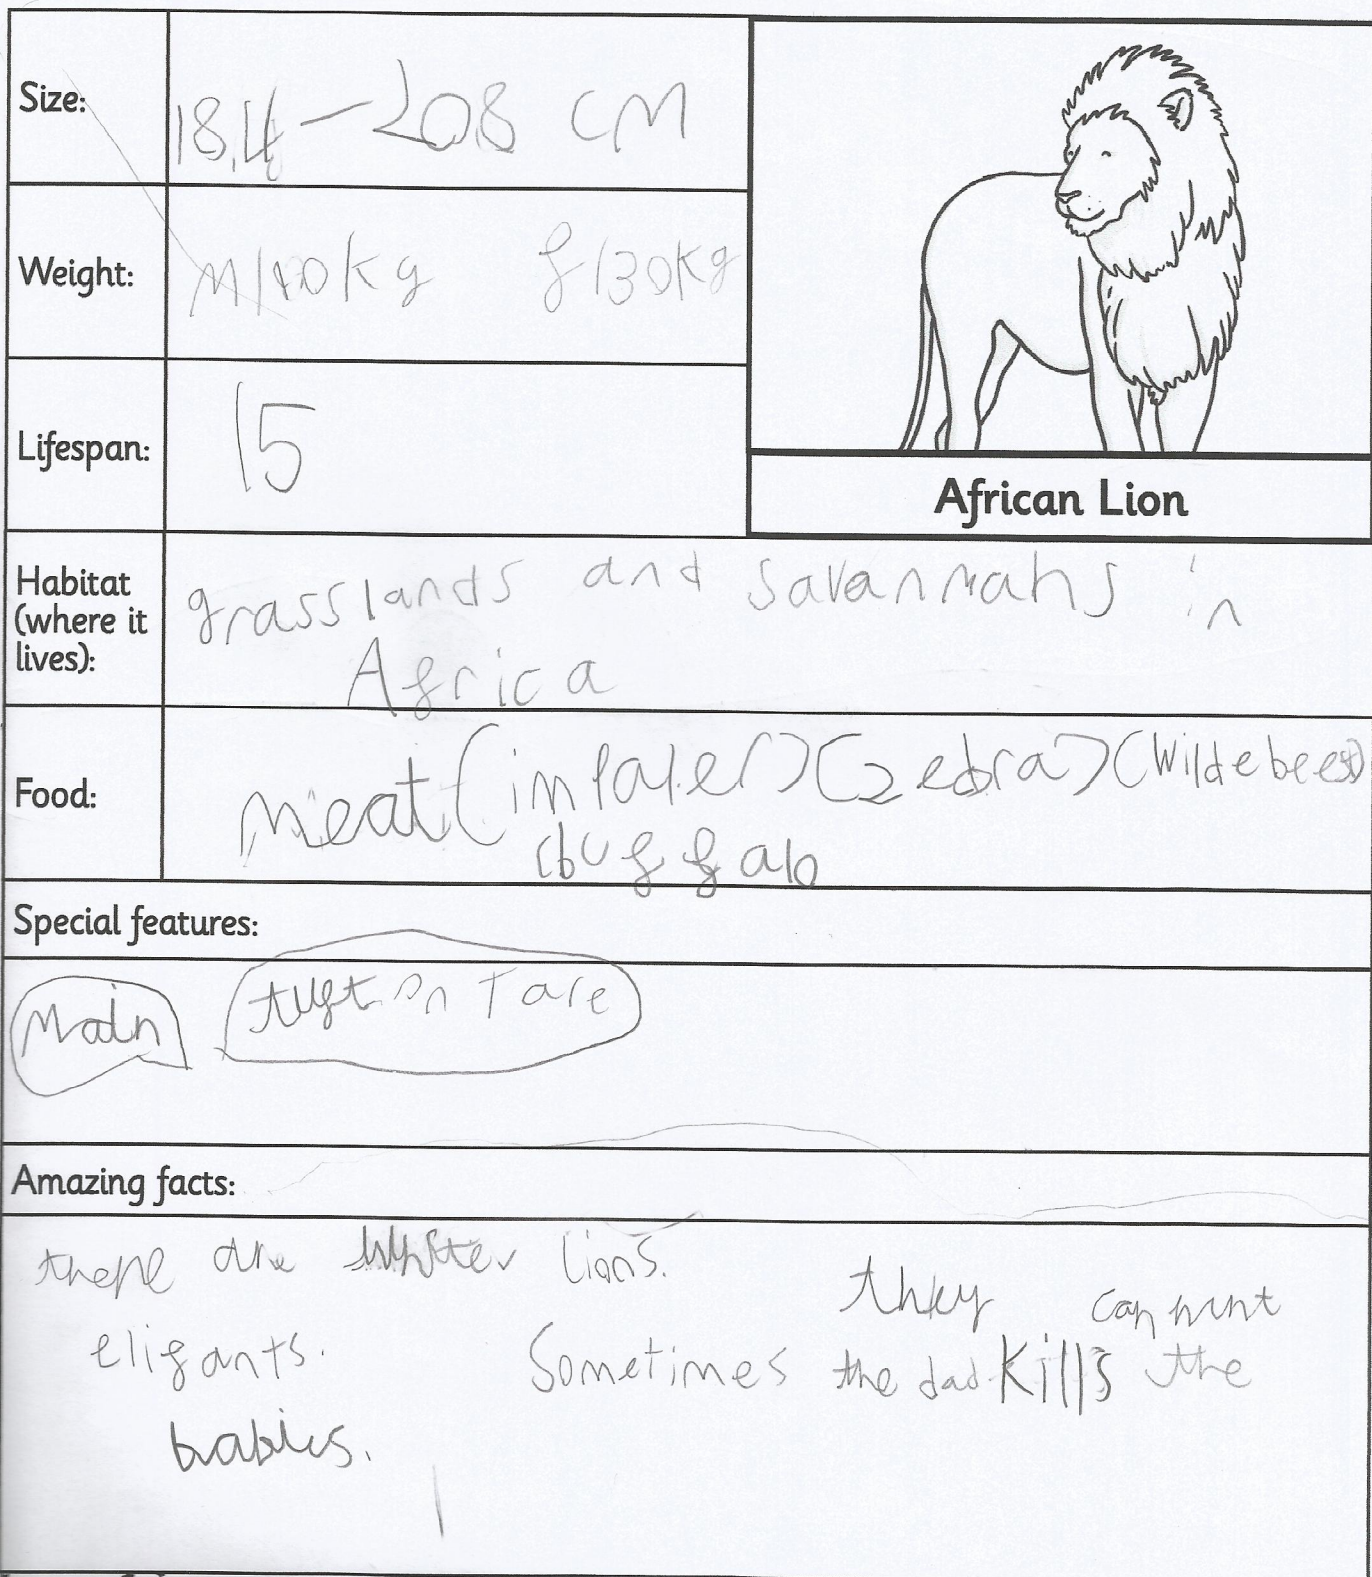 Size:
18,4 – 208 cM
Weight:
M140kg f130kg
Lifespan:
15
African Lion
Habitat
(where it
lives):
grasslands and Savannahs in
Africa
Food:
Meat (impaler) (zebra) (Wildebeest)
(buffalo
Special features:
Main
tuft on Tare
Amazing facts:
there are whiter Lions. they can hunt
elifants. Sometimes the dad kills the
babies.